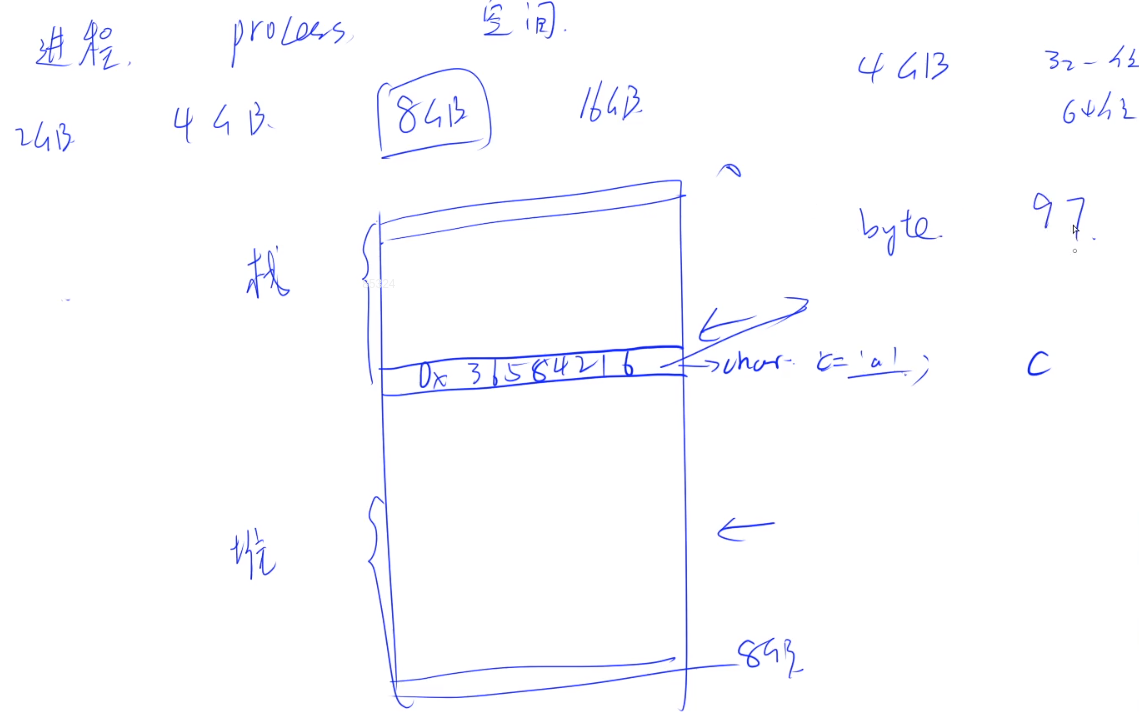 进程. process. 空间.
4GB 32-位
2GB 4GB 8GB 16GB
64位
byte. 97.
栈
0x 36584216 char c='a'; C
堆
8GB